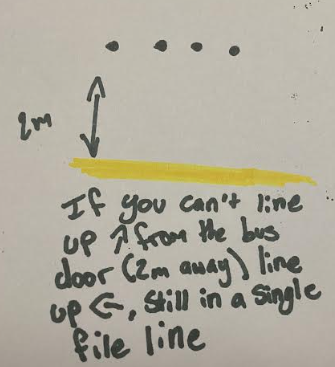 2m
If you can't line
up ↗ from the bus
door (2m away) line
up ←, still in a single
file line